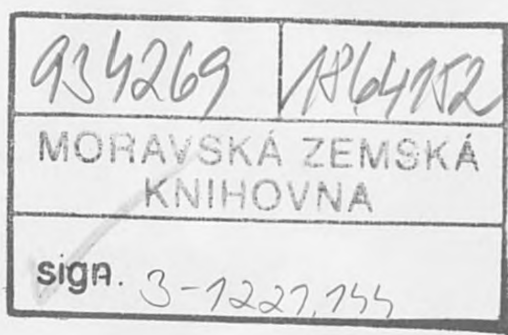 934269 1864152
MORAVSKÁ ZEMSKÁ
KNIHOVNA
sign. 3-1227.144